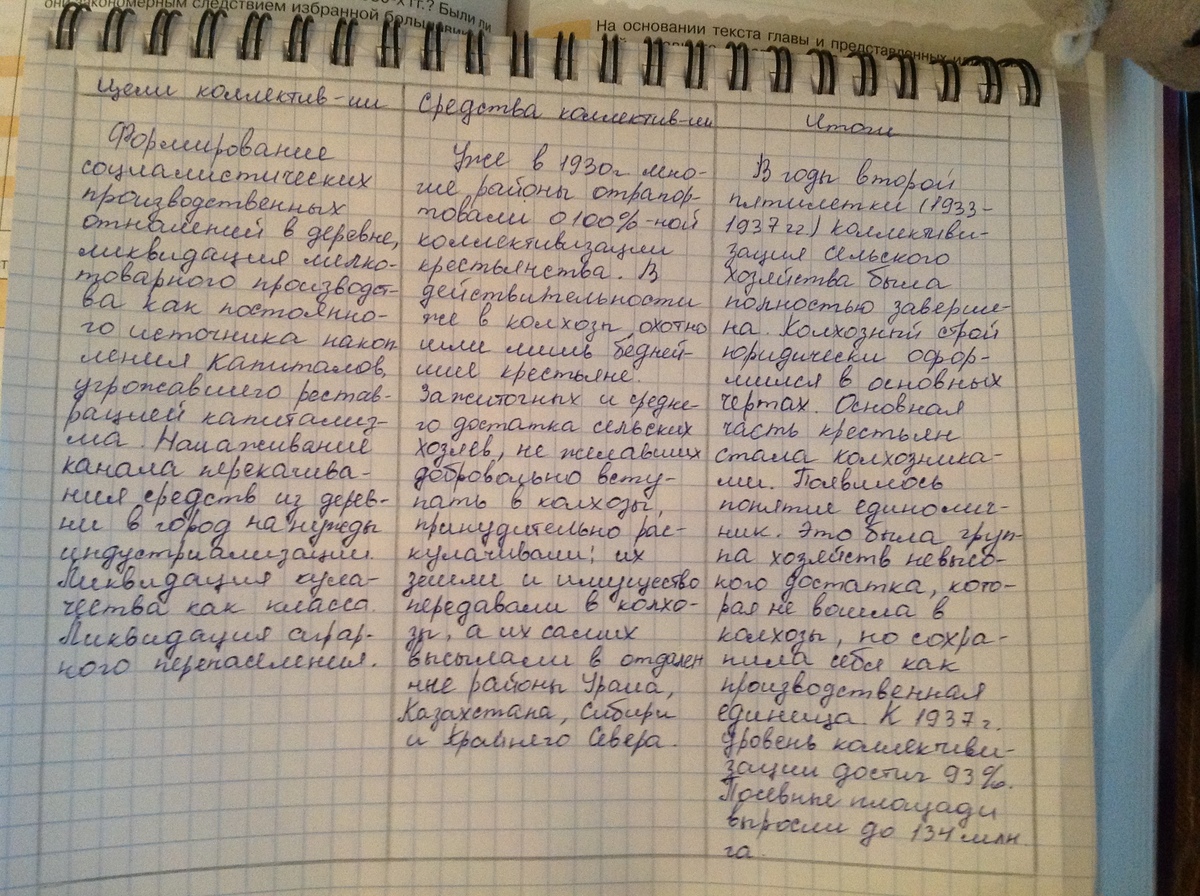 они закономерным следствием избранной
На основании текста главы и представленных
Цели коллектив-ии
Формирование
социалистических
производственных
отношений в деревне,
ликвидация мелко-
товарного производст-
ва как постоянно-
го источника накоп
ления капиталов,
угрожавшего рестав-
рацией капитализ-
ма. Налаживание
канала перекачива-
ния средств из дерев-
ни в город на нужды
индустриализации.
Ликвидация кула-
чества как класса.
Ликвидация аграр-
ного перенаселения.
Средства коллектив-ии
Уже в 1930г мно-
гие районы отрапор-
товали о 100%-ной
коллективизации
крестьянства. В
действительности
же в колхозы охотно
шли лишь бедней-
шие крестьяне.
Зажиточных и средне-
го достатка сельских
хозяев, не желавших
добровольно всту-
пать в колхозы,
принудительно рас-
кулачивали: их
земли и имущество
передавали в колхо-
зы, а их самих
высылали в отдален
ные районы Урала,
Казахстана, Сибири
и Крайнего Севера.
Итоги
В годы второй
пятилетки (1933-
1937гг) коллективи-
зация сельского
хозяйства была
полностью заверше-
на. Колхозный строй
юридически офор-
мился в основных
чертах. Основная
часть крестьян
стала колхозника-
ми. Появилось
понятие единолич-
ник. Это была груп-
па хозяйств невысо-
кого достатка, кото-
рая не вошла в
колхозы, но сохра-
нила себя как
производственная
единица. К 1937г.
уровень коллективи-
зации достиг 93%.
Посевные площади
выросли до 134 млн.
га.